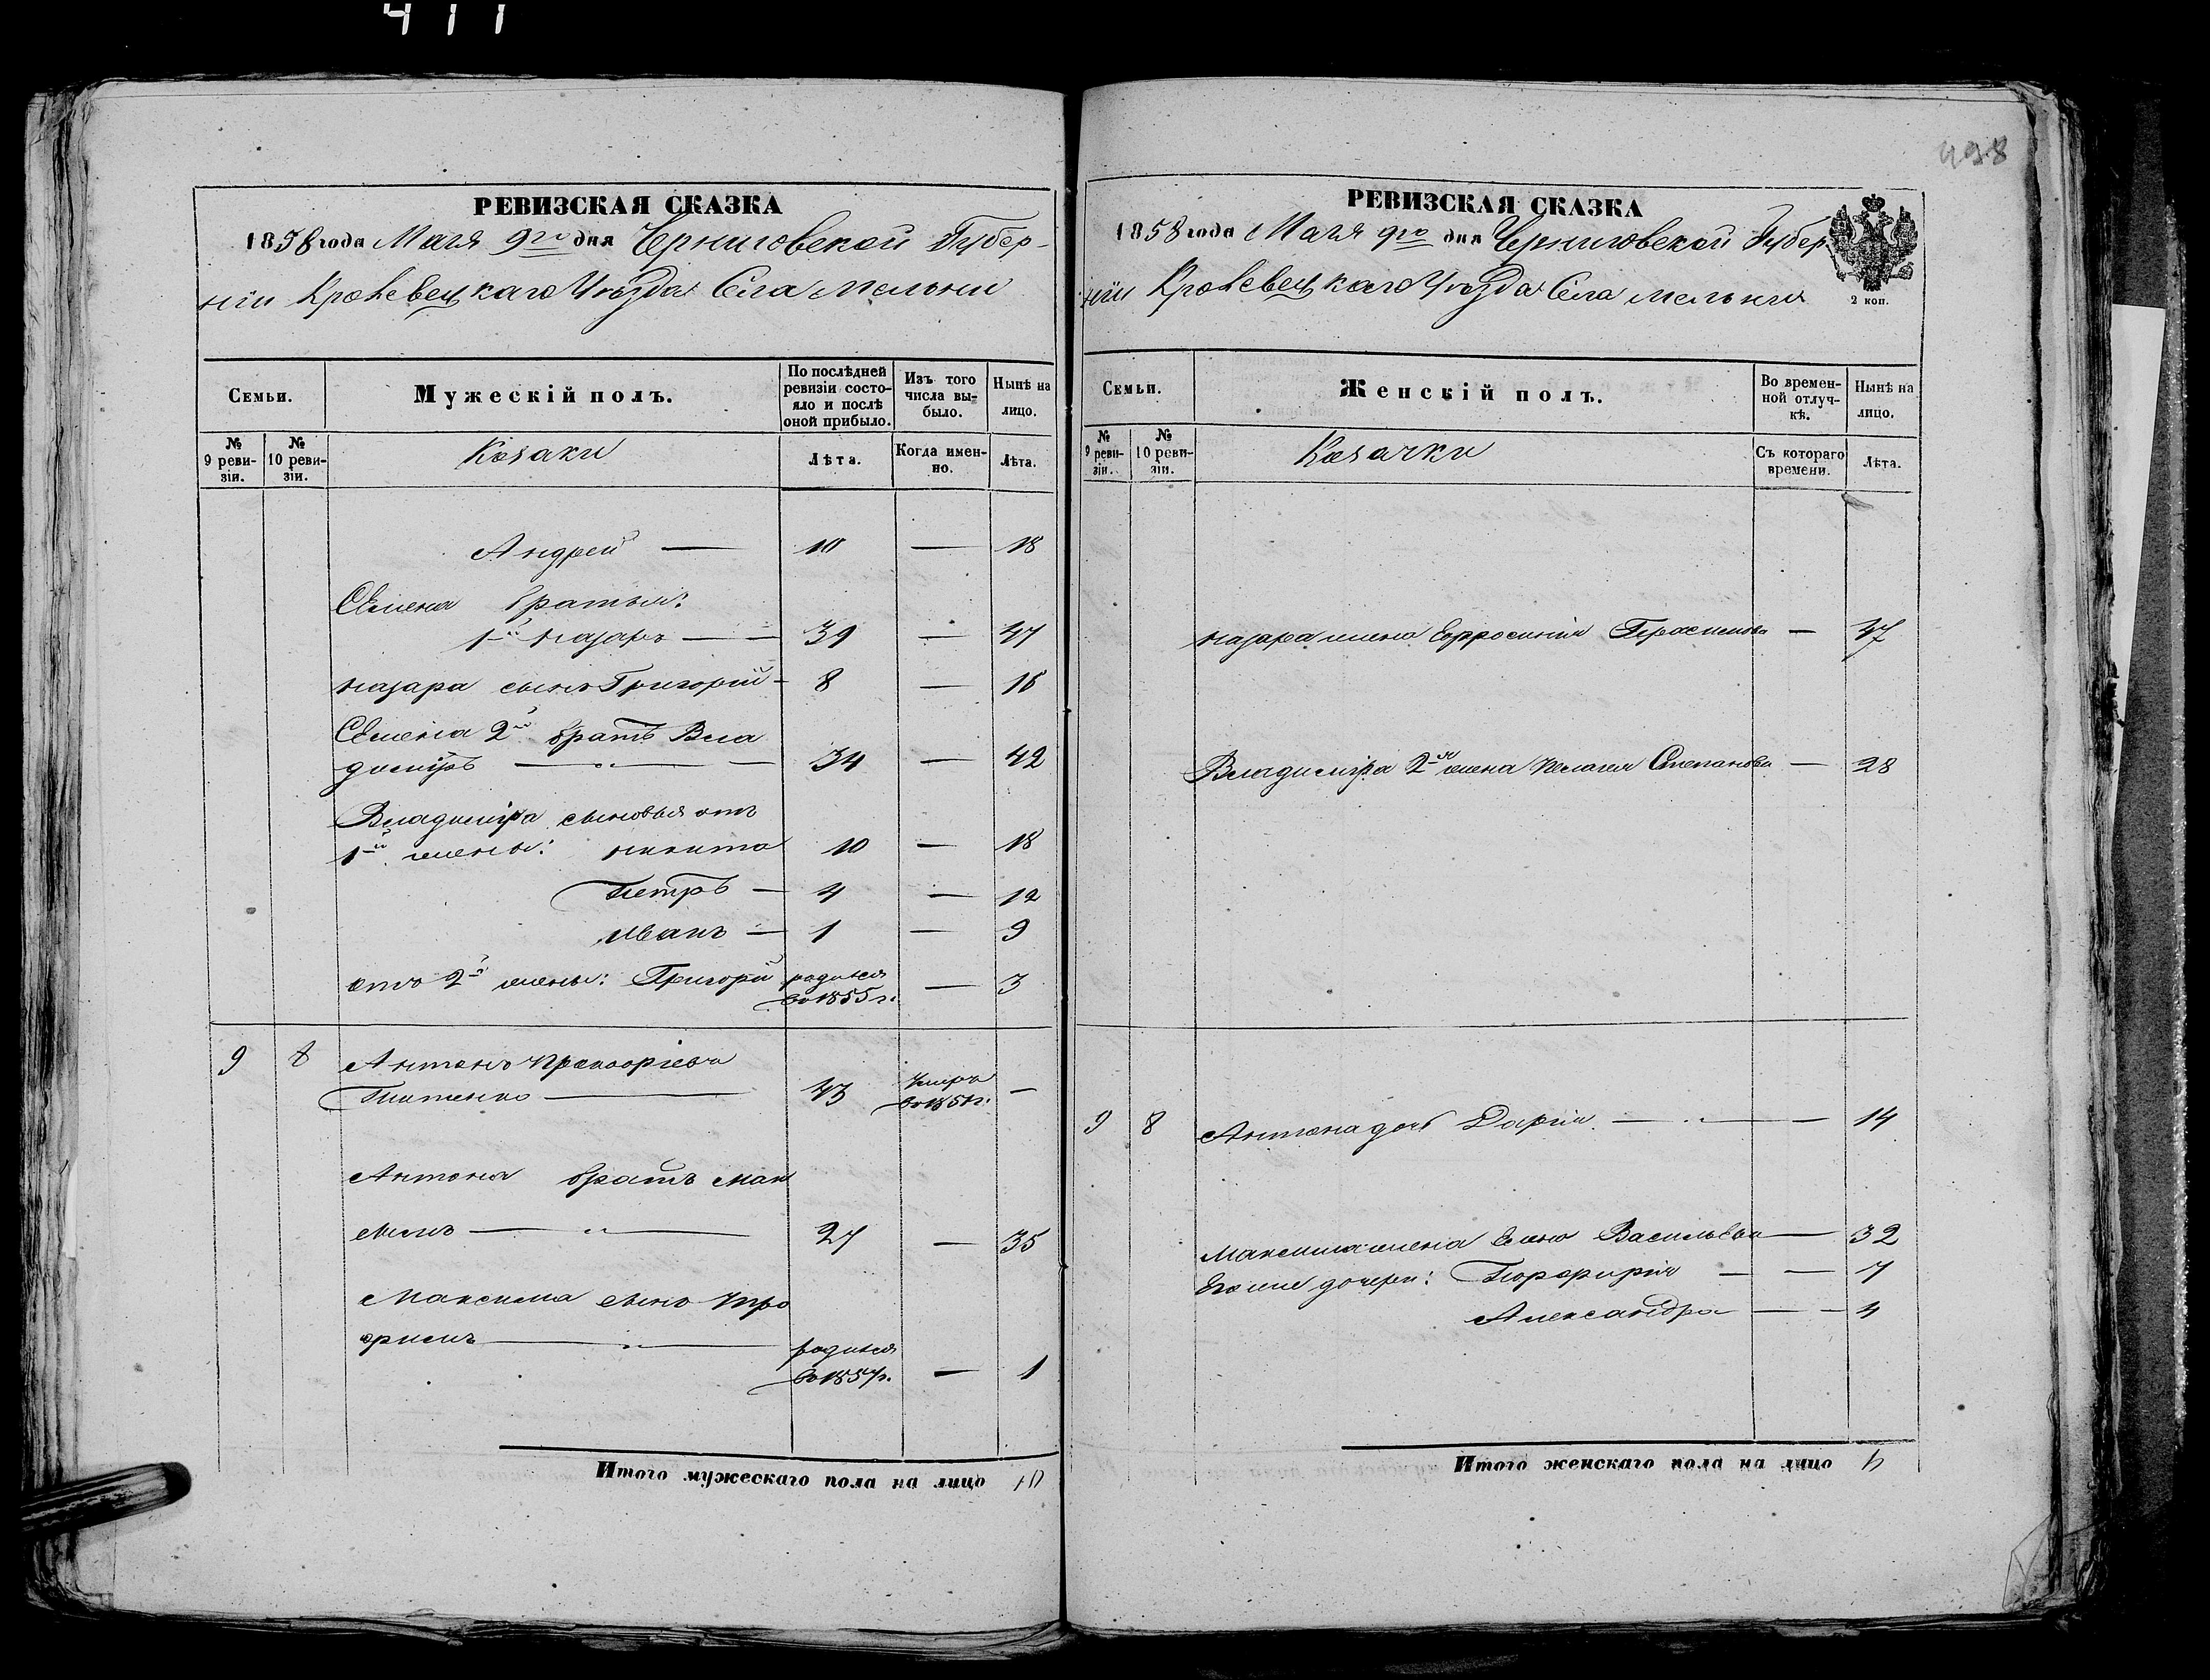 411
498
РЕВИЗСКАЯ СКАЗКА
1858 года Маія 9го дня Черниговской Губер-
ніи Кролевецкаго Уѣзда Села Мельни
Семьи.
Мужескій полъ.
По послѣдней ревизіи состояло и послѣ оной прибыло.
Изъ того числа выбыло.
Нынѣ на лицо.
№ 9 ревизіи.
№ 10 ревизіи.
Козаки
Лѣта.
Когда именно.
Лѣта.
Андрей — 10 — 18
Семена братья:
1й Назаръ — 39 — 47
Назара сынъ Григорій - 8 — 16
Семена 2й братъ Вла
диміръ — 34 — 42
Владиміра сыновья отъ
1й жены: Никита 10 — 18
Петръ — 4 — 12
Иванъ — 1 — 9
отъ 2й жены: Григорій родился — 3
въ 1855 г.
9 8 Антонъ
43 Умеръ —
въ 1851 г.
Антона братъ Мак
симъ — 27 — 35
Максима сынъ Тро
фимъ — родился
въ 1857 г. — 1
Итого мужескаго пола на лицо 10
РЕВИЗСКАЯ СКАЗКА
1858 года Маія 9го дня Черниговской Губер
ніи Кролевецкаго Уѣзда Села Мельни
2 коп.
Семьи.
Женскій полъ.
Во временной отлучкѣ.
Нынѣ на лицо.
№ 9 ревизіи.
№ 10 ревизіи.
Козачки
Съ котораго времени.
Лѣта.
Назара жена Ефросинія Герасимова — 47
Владиміра 2я жена Пелагея Степанова — 28
9 8 Антона дочь Дарія — 14
Максима жена Елена Васильева — 32
Ихъ же дочери: Порфирія — 7
Александра — 4
Итого женскаго пола на лицо